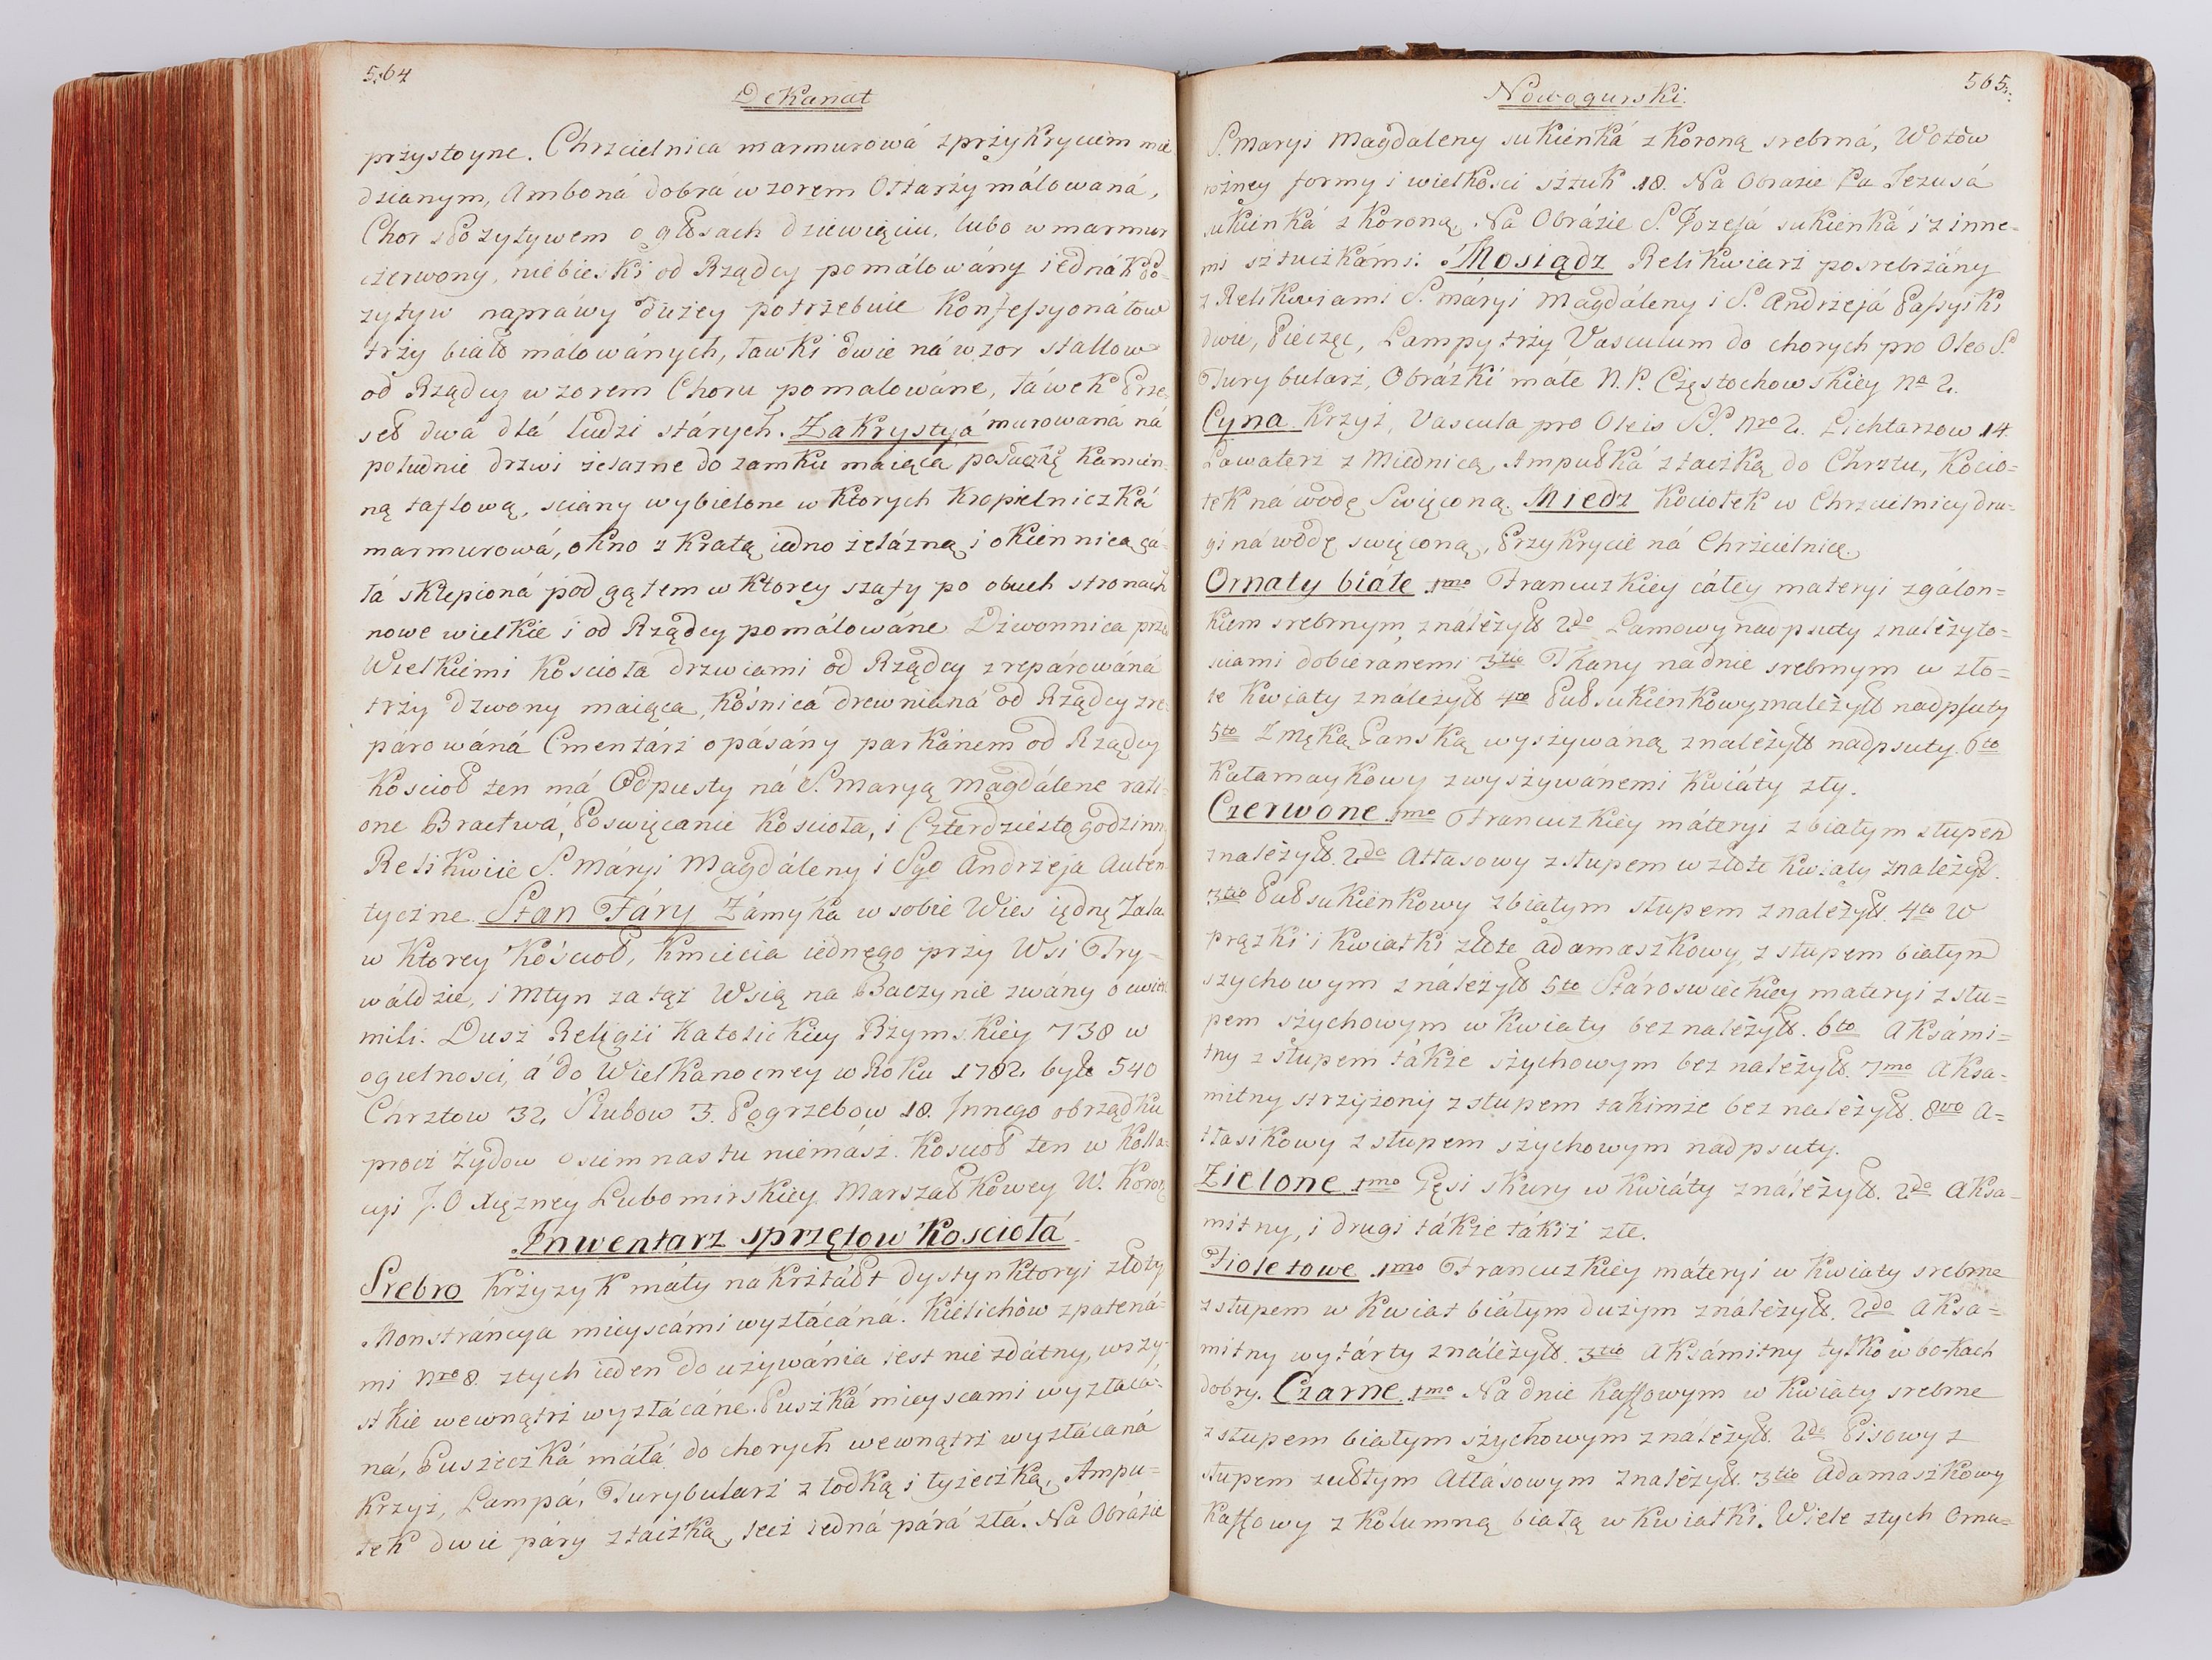 564
Dekanat
przystoyne. Chrzcielnica marmurowá z przykryciem mie
dzianym, Amboná dobrá wzorem Ołtarży málowaná,
Chor z Pozytywem o głosach dziewięciu, lubo w marmur
czerwony, niebieski od Rządcy pomálowány iednák Po-
zytyw naprawy dużey potrzebuie Konfessyonáłow
trzy biało málowánych, ławki dwie ná wzor stallow
od Rządcy wzorem Choru pomalowáne, ławek Prze-
seł dwá dlá ludzi stárych. Zakrystyá murowaná ná
południe drzwi żelazne do zamku maiąca posaczkę kamien-
ną taflową, sciany wybielone w ktorych kropielniczká
marmurowá, okno z kratą iedno żelázną i okiennicą cá-
łá sklepioná pod gątem w ktorey szafy po obuch stronach
nowe wielkie i od Rządcy pomálowáne Dzwonnica przed
Wielkiemi Kościoła drzwiami od Rządcy zreparowáná
trzy dzwony maiąca, kośnicá drewnianá od Rządcy zre-
párowáná Cmentárz opásány parkánem od Rządcy
Kościoł ten má Odpusty ná S. Maryą Magdálene rati-
one Bractwá, Poswięcanie Kościoła, i Czterdziesto godzinn
Relikwiie S. Máryi Magdáleny i Sgo Andrzeja Auten-
tyczne. Stan Fáry Zámyka w sobie Wies iędnę Zala
w ktorey Kościoł, Kmiecia iednego przy Wsi Try-
wáldzie, i Młyn za tąż Wsią na Baczynie zwány o cwierc
mili. Dusz Religii Katolickiey Rzymskiey 738 w
ogulnosci, á do Wielkanocney w Roku 1782 było 540
Chrztow 32 Slubow 3. Pogrzebow 18. Innego obrządku
procz Żydow osimnastu niemász. Kościoł ten w Kolla-
cyi J. O Xiężney Lubomirskiey Marszałkowey W. Koron
Inwentarz sprzętow Kościołá
Srebro Krzyzyk máły na krztałt dystynktoryi złoty
Monstráncya mieyscámi wyzłácáná. Kielichów z patená-
mi Nro 8. z tych ieden do używánia iest nie zdátny, wszy-
stkie wewnątrz wyzłácáne. Puszká mieyscami wyzłaca-
ná, Puszeczká máłá do chorych wewnątrz wyzłácaná
Krzyż, Lampá, Turybularz z łodką i łyżeczką, Ampu-
łek dwie páry z taczką, lecz iedná párá złá. Na Obrázie
Nowogurski.
565.
S. Maryi Magdaleny sukienká z koroną srebrná, Wotów
rożney formy i wielkosci sztuk 18. Na Obrazie Pa Jezusá
sukienká z koroną. Na Obrázie S. Jozefá sukienká i z inne-
mi sztuczkámi. Mosiądz Relikwiarz posrebrzány
z Relikwiami S. Máryi Magdáleny i S. Andrzejá Passyiki
dwie, Pieczęc, Lampy trzy Vasculum do chorych pro Oleo S.
Turybularz, Obrázki máłe N. P. Częstochowskiey No 2.
Cyna Krzyż, Vascula pro Oleis SS. Nro 2. Lichtarzow 14.
Lawaterz z Miednicą, Ampułká z taczką do Chrztu, Kocio-
łek ná wodę Swięconą. Miedz Kociołek w Chrzcielnicy dru-
gi ná wodę swięconą, Przykrycie ná Chrzcielnicę.
Ornaty białe 1mo Francuzkiey cáłey materyi z gálon-
kiem srebrnym z náleżył 2do Lamowy nadpsuty z należyto-
sciami dobieránemi 3tio Tkany na dnie srebrnym w zło-
te kwiaty z náleżył 4to Pułsukienkowy z należył nadpsuty
5to Z Męką Panską wyszywáną z należył nadpsuty. 6to
Kałamaykowy z wyszywánemi kwiáty zły.
Czerwone 1mo Francuzkiey máteryi z białym słupem
z należył. 2do Atłasowy z słupem w złote kwiaty z należył.
3tio Pułsukienkowy z białym słupem z należył. 4to W
prązki i kwiatki złote adamaszkowy, z słupem białym
szychowym z náleżył 5to Stároswieckiey materyi z słu-
pem szychowym w kwiaty bez należył. 6to Aksámi-
tny z słupem tákże szychowym bez należył. 7mo Aksa-
mitny strzyżony z słupem takimże bez należył. 8vo A-
tłasikowy z słupem szychowym nadpsuty.
Zielone 1mo Gęsi skury w kwiáty z náleżył. 2do Aksa-
mitny, i drugi tákże tákiż złe.
Fioletowe 1mo Francuzkiey máteryi w kwiaty srebrne
z słupem w kwiat białym dużym z náleżył. 2do Aksa-
mitny wytárty z náleżył. 3tio Aksámitny tylko w bokach
dobry. Czarne 1mo Na dnie kaffowym w kwiaty srebrne
z słupem białym szychowym z náleżył. 2do Pisowy z
słupem żułtym Atłásowym z należył. 3tio Adamaszkowy
Kaffowy z kolumną białą w kwiatki. Wiele z tych Orna-